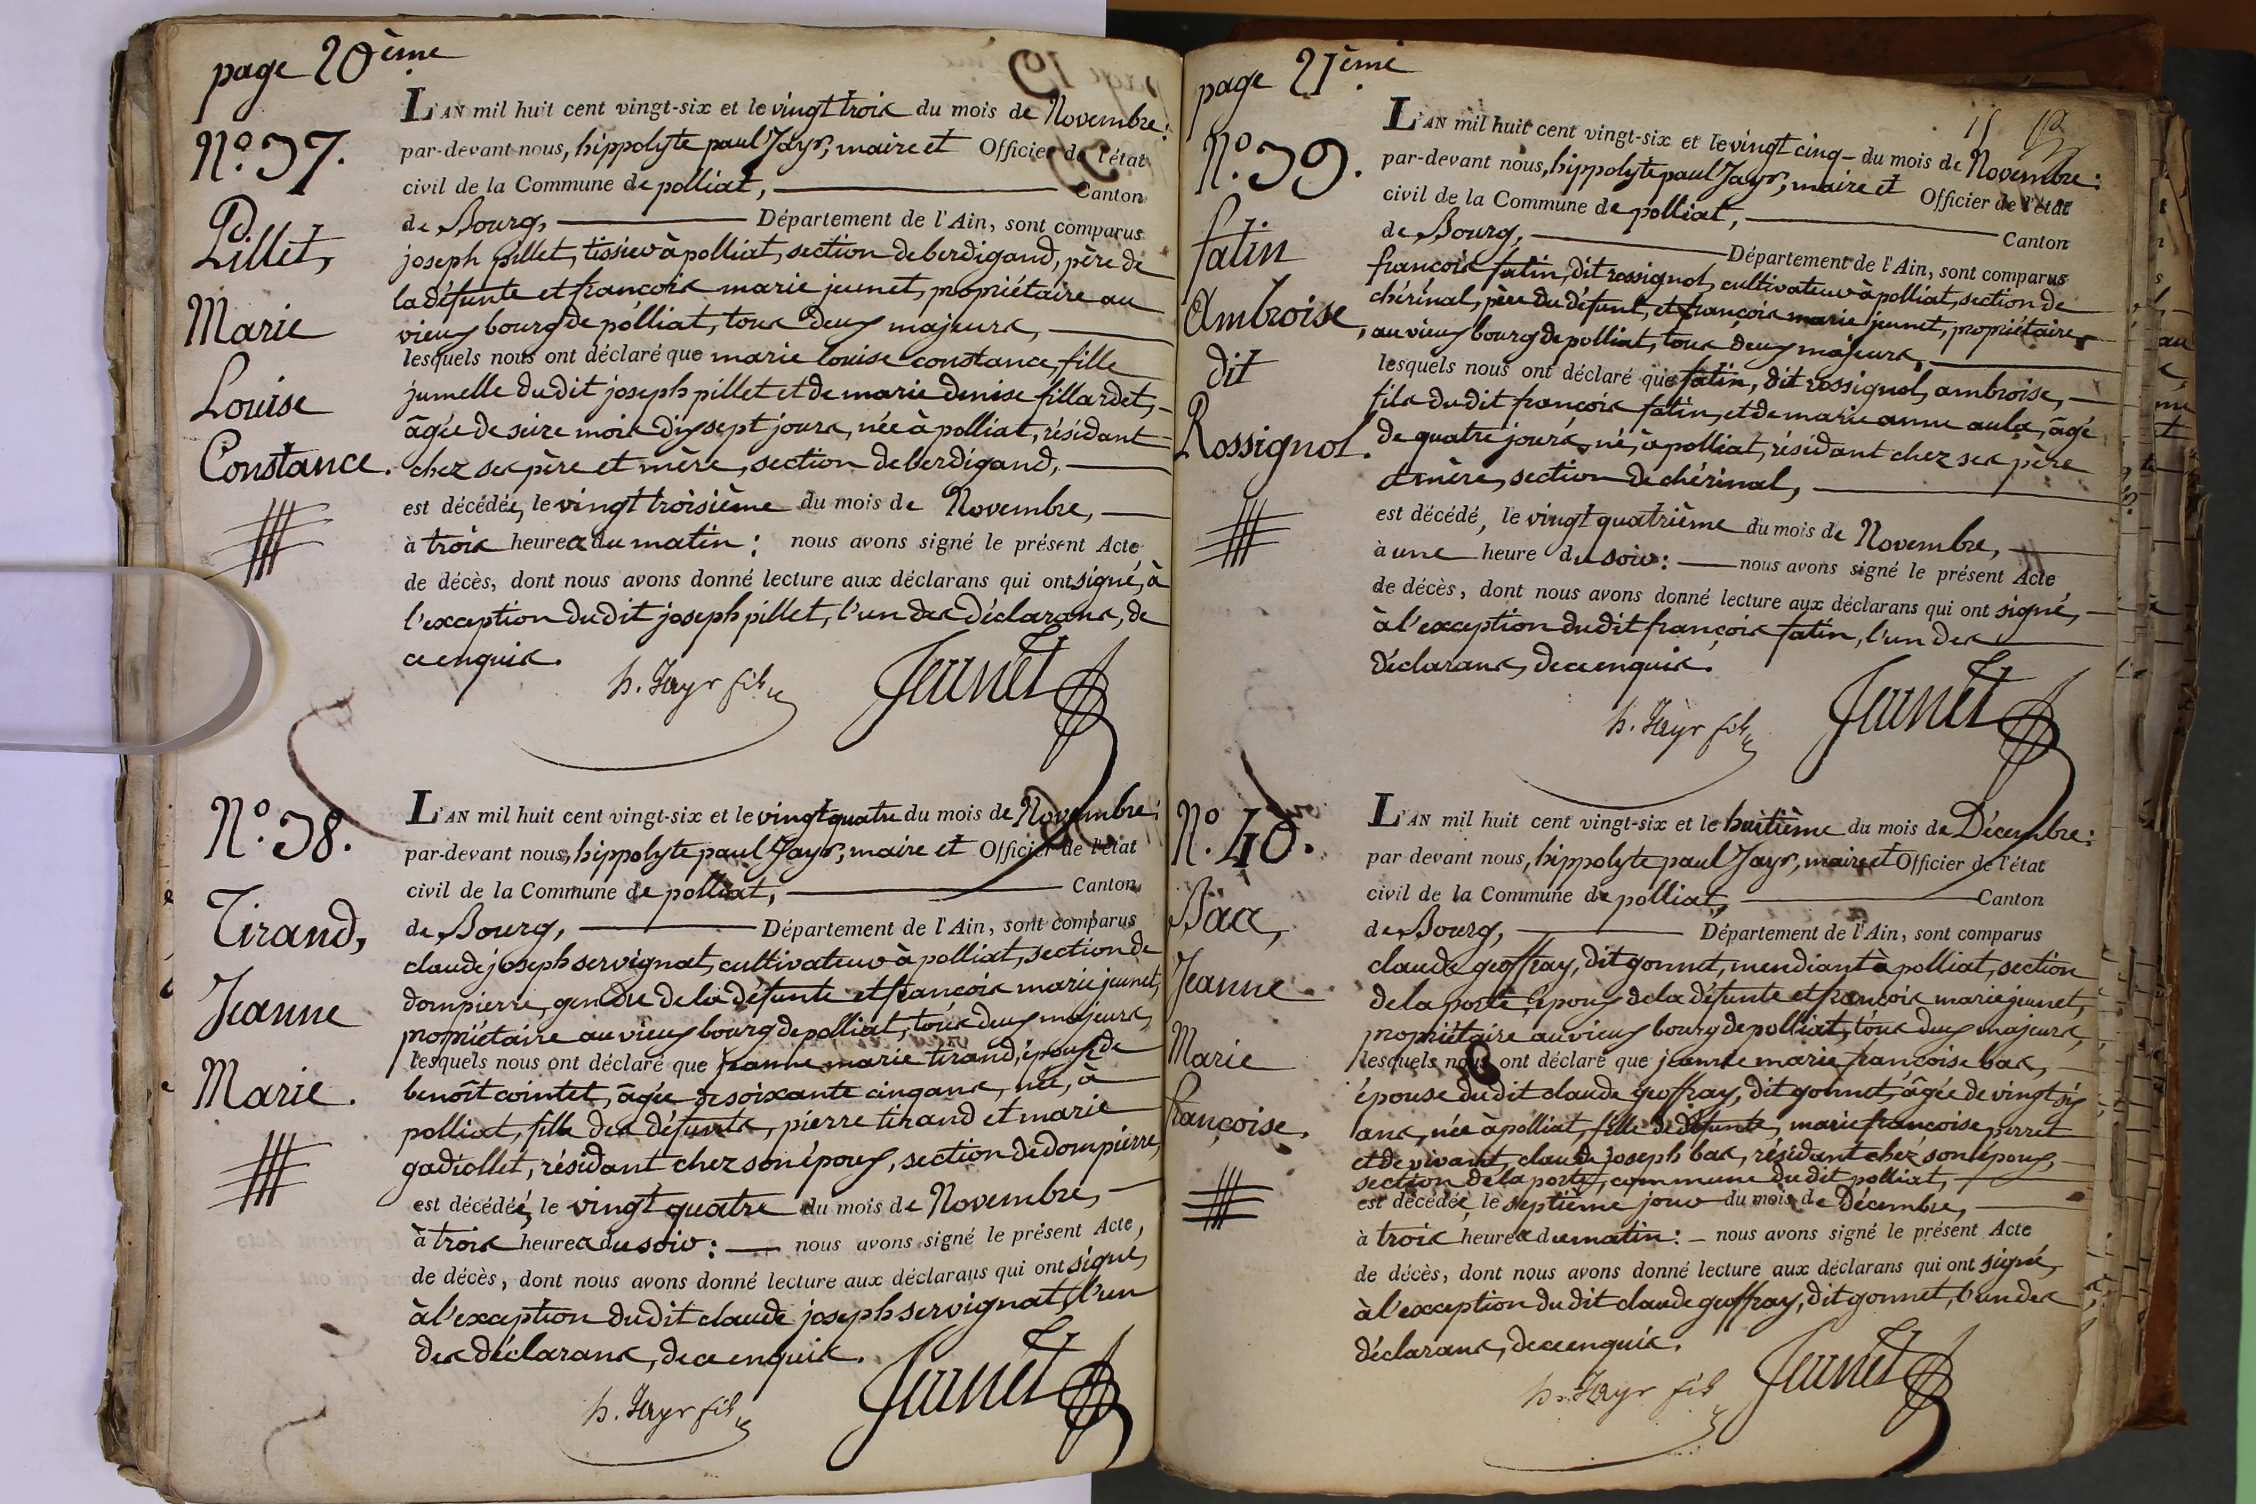 page 20ème
N.º 37.
Pillet,
Marie
Louise
Constance.
L'AN mil huit cent vingt-six et le vingt trois du mois de Novembre:
par-devant nous, hippolyte paul Jayr, maire et Officier de l'état
civil de la Commune de polliat, Canton
de Bourg, Département de l'Ain, sont comparus
joseph pillet, tissieur à polliat, section de berdigand, père de
la défunte et francois marie jeunet, propriétaire au
vieux bourg de polliat, tous deux majeurs,
lesquels nous ont déclaré que marie louise constance, fille
jumelle du dit joseph pillet et de marie denise fillardet,
âgée de seize mois dix sept jours, née à polliat, résidant
chez ses père et mère, section de berdigand,
est décédée, le vingt troisième du mois de Novembre,
à trois heures du matin: nous avons signé le présent Acte
de décès, dont nous avons donné lecture aux déclarans qui ont signé, à
l'exception du dit joseph pillet, l'un des déclarans, de
ce enquis.
h. Jayr fils
Jeunet
N.º 38.
Tirand,
Jeanne
Marie.
L'AN mil huit cent vingt-six et le vingt quatre du mois de Novembre:
par-devant nous, hippolyte paul Jayr, maire et Officier de l'état
civil de la Commune de polliat, Canton
de Bourg, Département de l'Ain, sont comparus
claude joseph servignat, cultivateur à polliat, section de
dompierre, gendre de la défunte et francois marie jeunet,
propriétaire au vieux bourg de polliat, tous deux majeurs,
lesquels nous ont déclaré que jeanne marie tirand, épouse de
benoît cointet, âgée de soixante cinq ans, née, à
polliat, fille des défunts, pierre tirand et marie
gadiollet, résidant chez son époux, section de dompierre,
est décédée, le vingt quatre du mois de Novembre,
à trois heures du soir: nous avons signé le présent Acte,
de décès, dont nous avons donné lecture aux déclarans qui ont signé,
à l'exception du dit claude joseph servignat, l'un
des déclarans, de ce enquis.
h. Jayr fils
Jeunet
page 21ème
N.º 39.
fatin
Ambroise,
dit
Rossignol.
L'AN mil huit cent vingt-six et le vingt cinq du mois de Novembre:
par-devant nous, hippolyte paul Jayr, maire et Officier de l'état
civil de la Commune de polliat, Canton
de Bourg, Département de l'Ain, sont comparus
françois fatin, dit rossignol, cultivateur à polliat, section de
chérinal, père du défunt, et françois marie jeunet, propriétaire,
au vieux bourg de polliat, tous deux majeurs,
lesquels nous ont déclaré que fatin, dit rossignol, ambroise,
fils du dit françois fatin, et de marie anne aula, âgé
de quatre jours, né, à polliat, résidant chez ses père
et mère, section de chérinal,
est décédé, le vingt quatrième du mois de Novembre,
à une heure du soir: nous avons signé le présent Acte
de décès, dont nous avons donné lecture aux déclarans qui ont signé,
à l'exception du dit françois fatin, l'un des
déclarans, de ce enquis.
h. Jayr fils
Jeunet
N.º 40.
Bac,
Jeanne
Marie
françoise.
L'AN mil huit cent vingt-six et le huitième du mois de Décembre:
par devant nous, hippolyte paul Jayr, maire et Officier de l'état
civil de la Commune de polliat, Canton
de Bourg, Département de l'Ain, sont comparus
claude geoffray, dit gonnet, mendiant à polliat, section
de la porte, époux de la défunte et françois marie jeunet,
propriétaire au vieux bourg de polliat, tous deux majeurs,
lesquels nous ont déclaré que jeanne marie françoise bac,
épouse du dit claude geoffray, dit gonnet, âgée de vingt six
ans, née à polliat, fille de défunte, marie françoise perret
et de vivant, claude joseph bac, résidant chez son époux,
section de la porte, commune du dit polliat,
est décédée, le septième jour du mois de Décembre,
à trois heures du matin: nous avons signé le présent Acte
de décès, dont nous avons donné lecture aux déclarans qui ont signé,
à l'exception du dit claude geoffray, dit gonnet, l'un des
déclarans, de ce enquis.
h. Jayr fils
Jeunet